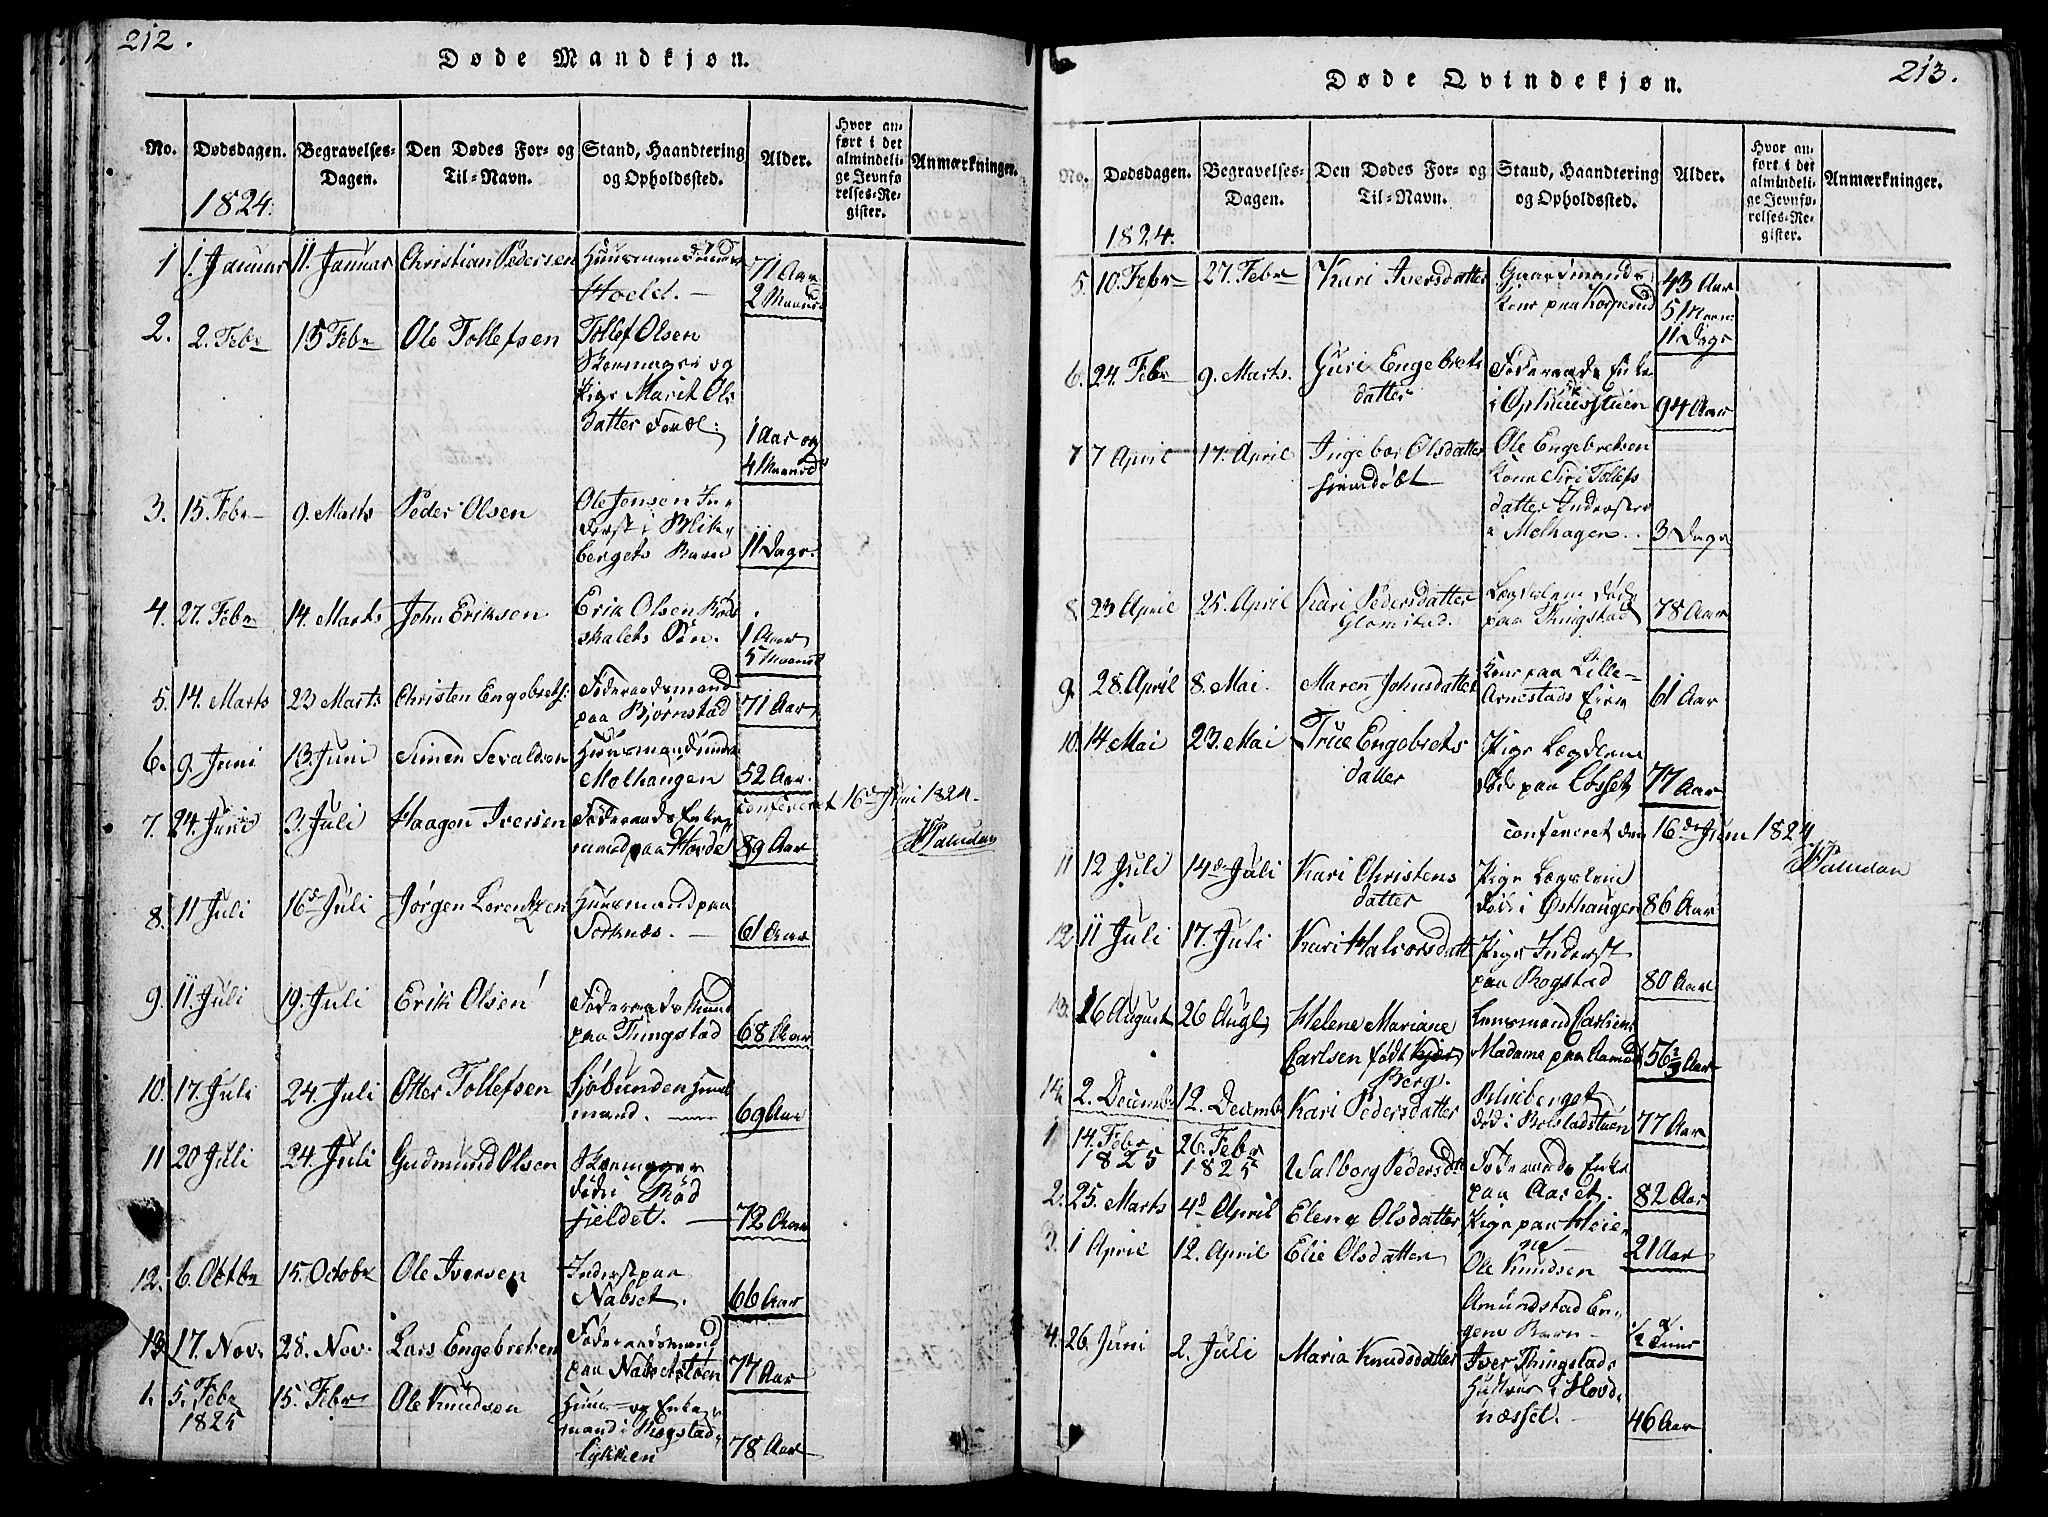 212.
Døde Mandkjøn.
No. Dødsdagen. Begravelses-Dagen. Den Dødes For- og Til-Navn. Stand, Haandtering og Opholdssted. Alder. Hvor anført i det almindelige Jevnførelses-Register. Anmærkninger.
1824.
1 1. Januar 11. Januar Christian Pedersen Huusmand under
Hoeld. 71 Aar
2 Maaned
2. 2. Febr 15 Febr Ole Tollefsen Tollef Olsen
Skoemager og
Pige Marit Ols
datter 1 Aar og
4 Maaned
3. 15. Febr 9. Marts Peder Olsen Ole Jensen In-
derst i Blik-
bergets Barn 11 Dage
4. 27. Febr 14. Marts John Eriksen Erik Olsen
Søn. 1 Aar
5 Maaned
5. 14. Marts 23 Marts Christen Engebrets: Føderaadsmand
paa Bjørnstad 71 Aar
6. 9. Juni 13. Juni Simen Sevaldsen Huusmand under
Molhaugen 52 Aar.
conferert 16de Juni 1824.
Paludan
7. 24. Juni 3. Juli Haagen Iversen Føderaads Enke-
mand paa Hovde 89 Aar
8. 11 Juli 16d Juli Jørgen Lorentzen Huusmand paa
Sorknæs. 61 Aar
9. 11. Juli 19. Juli Erik Olsen Føderaads Mand
paa Thingstad 68 Aar
10. 17. Juli 24. Juli Otter Tollefsen Huus
mand. 69 Aar
11 20 Juli 24. Juli Gudmund Olsen Skoemager
død i Rød
fieldet. 72 Aar
12. 6. Octbr 15. Octobr Ole Iversen Inderst paa
Nabset. 66 Aar
13 17. Nov. 28. Nov. Lars Engebretsen Føderaadsmand
paa Nabsetstuen 77 Aar
1. 5. Febr 15. Febr Ole Knudsen Huus- og Enke-
1825 mand i Rogstad-
lykken 78 Aar
213.
Døde Qvindekjøn.
No. Dødsdagen. Begravelses-Dagen. Den Dødes For- og Til-Navn. Stand, Haandtering og Opholdssted. Alder. Hvor anført i det almindelige Jevnførelses-Register. Anmærkninger.
1824.
5. 10. Febr 27. Febr Kari Iversdatter Gaardmands
Kone paa Korperud 43 Aar
5 Maan:
11 Dage
6. 24. Febr 9. Marts. Guri Engebrets
datter Føderaads Enke
i Ophuusstuen 94 Aar
7 7 April 17. April Ingebor Olsdatter
hiemdøbt Ole Engebretsen
Kone Siri Tollefs
datter Inderster
i Molhagen. 3 Dage
8 23 April 25. April Kari Pedersdatter
Glomstad. Lægslem død
paa Thingstad 78 Aar
9. 28. April 8. Mai. Maren Johnsdatter Kone paa Lille-
Arnestads Eie 61 Aar
10. 14 Mai 23. Mai True Engebrets
datter Pige Lægdlem
død paa Losset 77 Aar
conferert den 16de Juni 1824
Paludan
11 12 Juli 14de Juli Kari Christens
datter Pige Lægslem
død i Østhaugen 86 Aar
12 11 Juli 17. Juli Kari Halvorsdatt Pige Inderst
paa Rogstad 80 Aar
13. 16 August 26 Aug Helene Mariane
Carlsen født
Berg. Lensmand Carlsens
Madame paa Aamot 56 Aar
14 2. Decemb 12. Decemb Kari Pedersdatter Blikberget
død i Bolstadstuen 77 Aar
1 14. Febr 26. Febr
1825 1825 Walborg Pedersd Føderaads Enke
paa Aaset. 82 Aar
2. 25. Marts 4d April Elena Olsdatter Pige paa Heie-
ne 21 Aar
3. 1 April 12. April Elie Olsdatter Ole Knudsen
Amundstad En-
gens Barn 1/2 a.
4. 26. Juni 2. Juli Maria Knudsdatter Iver Thingstads
Hustrue i Hovd-
næsset. 46 Aar